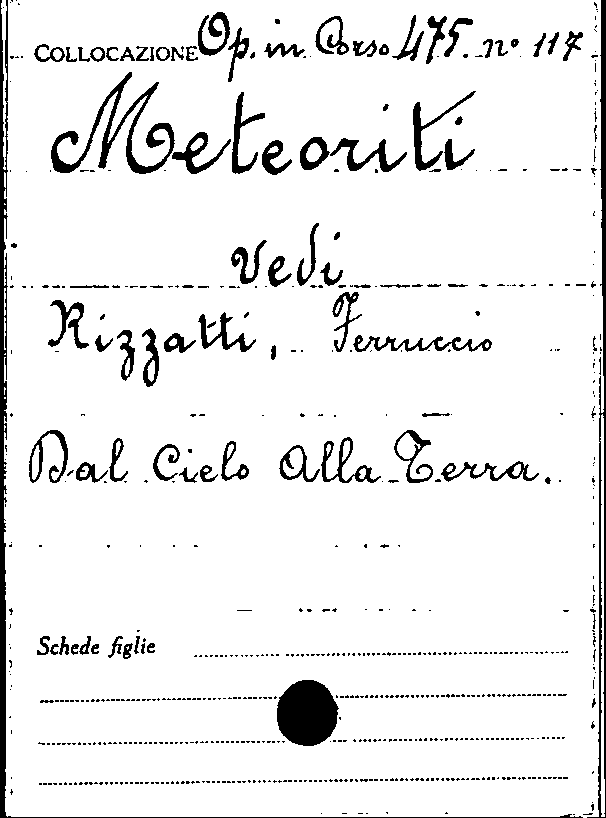 COLLOCAZIONE Op. in Corso 475. n° 117
Meteoriti
vedi
Rizzatti, Ferruccio
Dal Cielo alla Terra.
Schede figlie